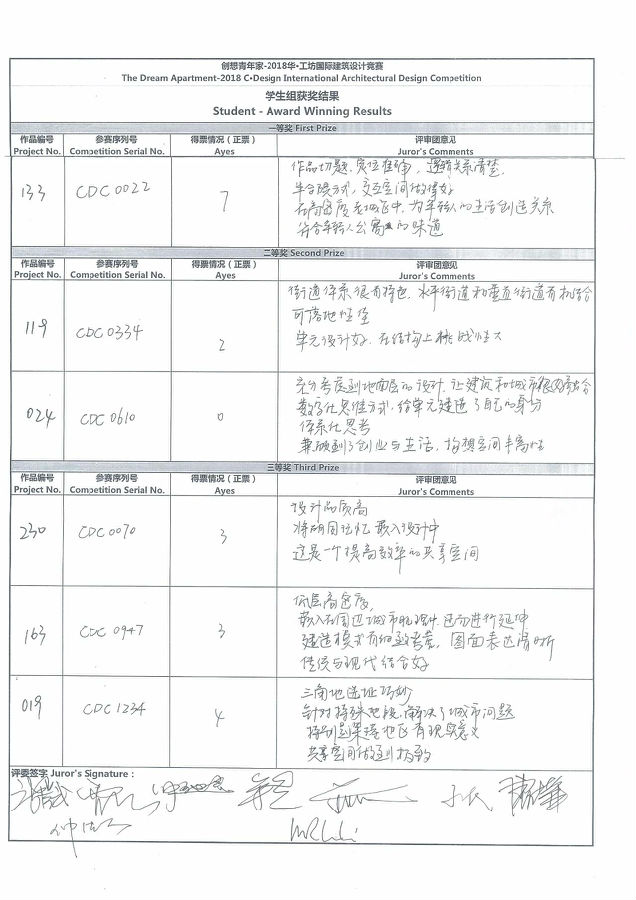 创想青年家-2018华·工坊国际建筑设计竞赛
The Dream Apartment-2018 C•Design International Architectural Design Competition
学生组获奖结果
Student - Award Winning Results
一等奖 First Prize
作品编号 参赛序列号 得票情况（正票） 评审团意见
Project No. Competition Serial No. Ayes Juror's Comments
133 CDC0022 7
作品切题，定位准确，逻辑关系清楚，
半台阶方式，交互空间做得好
在高密度老城区中，为年轻人的生活创造关系
符合年轻人公寓的味道
二等奖 Second Prize
作品编号 参赛序列号 得票情况（正票） 评审团意见
Project No. Competition Serial No. Ayes Juror's Comments
119 CDC0334 2
街道体系很有特色，水平街道和垂直街道有机结合
可落地性强
单元设计好，在结构上挑战性大
024 CDC0610 0
充分考虑到地面层的设计，让建筑和城市很好结合
数字化思维方式，给单元建造了自己的身份
体系化思考
兼顾到了创业与生活，构想空间丰富性
三等奖 Third Prize
作品编号 参赛序列号 得票情况（正票） 评审团意见
Project No. Competition Serial No. Ayes Juror's Comments
230 CDC0070 3
设计品质高
将胡同记忆嵌入设计中
这是一个提高效率的共享空间
163 CDC0947 3
低层高密度，
嵌入在周边城市肌理中，进行延伸
建造模式有细致考虑，图面表达清晰
传统与现代结合好
019 CDC1234 4
三角地选址巧妙
针对特殊地段，解决了城市问题
特别是某些地区有现实意义
共享空间做到极致
评委签字 Juror's Signature：